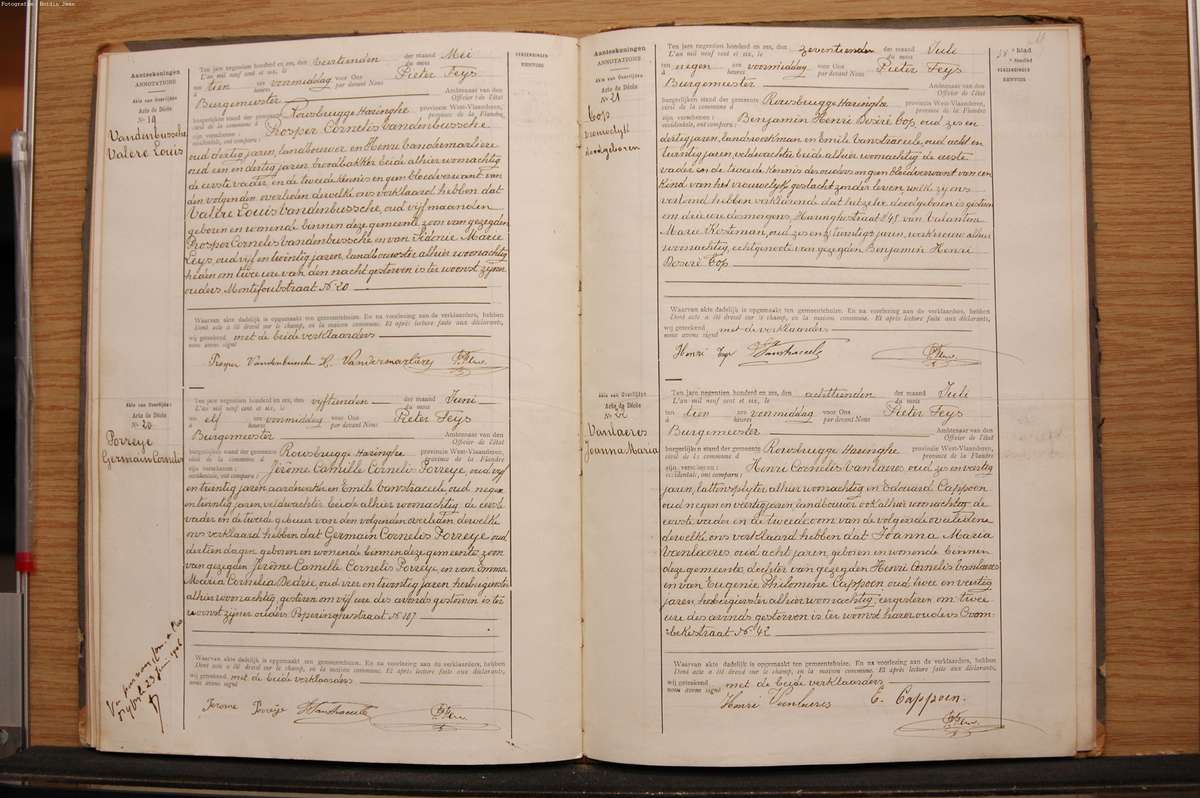 Fotografie: Boidin Jean
Aanteekeningen
ANNOTATIONS
Akte van Overlijden
Acte de Décès
N° 19
Vandenbussche
Valere Louis
Ten jare negentien honderd en zes, den veertienden der maand Mei
L'an mil neuf cent et six, le du mois
ten tien ure voormiddag voor Ons Pieter Feys
à heures par devant Nous
Burgemeester Ambtenaar van den
Officier de l'état
burgerlijken stand der gemeente Rousbrugge Haringhe provincie West-Vlaanderen,
civil de la commune d province de la Flandre
zijn verschenen: Prosper Cornelis Vandenbussche
occidentale, ont comparu:
oud dertig jaren, landbouwer en Henri Vandermarliere
oud een en dertig jaren, broodbakker beide alhier woonachtig
de eerste vader en de tweede kennis en geen bloedverwant van
den volgenden overleden dewelke ons verklaard hebben dat
Valere Louis Vandenbussche, oud vijf maanden
geboren en wonende binnen deze gemeente zoon van gezegden
Prosper Cornelis Vandenbussche en van Sidonie Marie
Leys, oud vijf en twintig jaren, landbouwster alhier woonachtig
heden om twee ure van den nacht gestorven is ter woonst zijner
ouders Montefoubstraat N° 20
Waarvan akte dadelijk is opgemaakt ten gemeentehuize. En na voorlezing aan de verklaarders, hebben
Dont acte a été dressé sur le champ, en la maison commune. Et après lecture faite aux déclarants,
wij geteekend met de beide verklaarders
nous avons signé
Prosper Vandenbussche H. Vandermarliere
Akte van Overlijden
Acte de Décès
N° 20
Porreye
Germain Cornelis
Ten jare negentien honderd en zes, den vijftienden der maand Juni
L'an mil neuf cent et six, le du mois
ten elf ure voormiddag voor Ons Pieter Feys
à heures par devant Nous
Burgemeester Ambtenaar van den
Officier de l'état
burgerlijken stand der gemeente Rousbrugge Haringhe provincie West-Vlaanderen,
civil de la commune d province de la Flandre
zijn verschenen: Jérôme Camille Cornelis Porreye, oud vijf
occidentale, ont comparu:
en twintig jaren aardwerker en Emile Vanstraceele, oud negen
en twintig jaren, veldwachter beide alhier woonachtig de eerste
vader en de tweede gebuur van den volgenden overleden dewelke
ons verklaard hebben dat Germain Cornelis Porreye oud
dertien dagen, geboren en wonende binnen deze gemeente zoon
van gezegden Jérôme Camille Cornelis Porreye en van Emma
Maria Cornelia Dedrie, oud vier en twintig jaren, herbergierster
alhier woonachtig, gisteren om vijf ure des avonds gestorven is ter
woonst zijner ouders Poperinghestraat N° 107
Waarvan akte dadelijk is opgemaakt ten gemeentehuize. En na voorlezing aan de verklaarders, hebben
Dont acte a été dressé sur le champ, en la maison commune. Et après lecture faite aux déclarants,
wij geteekend met de beide verklaarders
nous avons signé
Jerome Porreye
VERZENDINGEN
RENVOIS
Aanteekeningen
ANNOTATIONS
Akte van Overlijden
Acte de Décès
N° 21
Cop
vrouwelijk
doodgeboren
Ten jare negentien honderd en zes, den zeventienden der maand Juli
L'an mil neuf cent et six, le du mois
ten negen ure voormiddag voor Ons Pieter Feys
à heures par devant Nous
Burgemeester Ambtenaar van den
Officier de l'état
burgerlijken stand der gemeente Rousbrugge Haringhe provincie West-Vlaanderen,
civil de la commune d province de la Flandre
zijn verschenen: Benjamin Henri Desiré Cop, oud zes en
occidentale, ont comparu:
dertig jaren, landswerkman en Emile Vanstraceele, oud acht en
twintig jaren, veldwachter beide alhier woonachtig de eerste
vader en de tweede kennis des ouders en geen bloedverwant van een
kind van het vrouwelijk geslacht zonder leven, welk zij ons
vertoond hebben verklarend dat hetzelve doodgeboren is gisteren
om drie ure des morgens, Haringhestraat N° 45 van Valentine
Marie Kesteman, oud zes en twintig jaren, werkvrouw alhier
woonachtig, echtgenote van gezegden Benjamin Henri
Desiré Cop
Waarvan akte dadelijk is opgemaakt ten gemeentehuize. En na voorlezing aan de verklaarders, hebben
Dont acte a été dressé sur le champ, en la maison commune. Et après lecture faite aux déclarants,
wij geteekend met de verklaarders
nous avons signé
Henri Cop Vanstraceele
Akte van Overlijden
Acte de Décès
N° 22
Vanlaeres
Joanna Maria
Ten jare negentien honderd en zes, den achttienden der maand Juli
L'an mil neuf cent et six, le du mois
ten tien ure voormiddag voor Ons Pieter Feys
à heures par devant Nous
Burgemeester Ambtenaar van den
Officier de l'état
burgerlijken stand der gemeente Rousbrugge Haringhe provincie West-Vlaanderen,
civil de la commune d province de la Flandre
zijn verschenen: Henri Cornelis Vanlaeres oud zes en veertig
occidentale, ont comparu:
jaren, lattensplyter alhier woonachtig en Edouard Cappoen
oud negen en veertig jaren, landbouwer ook alhier woonachtig de
eerste vader en de tweede oom van de volgende overledene
dewelke ons verklaard hebben dat Joanna Maria
Vanlaeres oud acht jaren, geboren en wonende binnen
deze gemeente, dochter van gezegden Henri Cornelis Vanlaeres
en van Eugenie Philomene Cappoen oud twee en veertig
jaren, herbergierster alhier woonachtig, eergisteren om twee
ure des avonds gestorven is ter woonst harer ouders Crom-
bekestraat N° 42
Waarvan akte dadelijk is opgemaakt ten gemeentehuize. En na voorlezing aan de verklaarders, hebben
Dont acte a été dressé sur le champ, en la maison commune. Et après lecture faite aux déclarants,
wij geteekend met de beide verklaarders
nous avons signé
Henri Vanlaeres E. Cappoen.
blad
VERZENDINGEN
RENVOIS